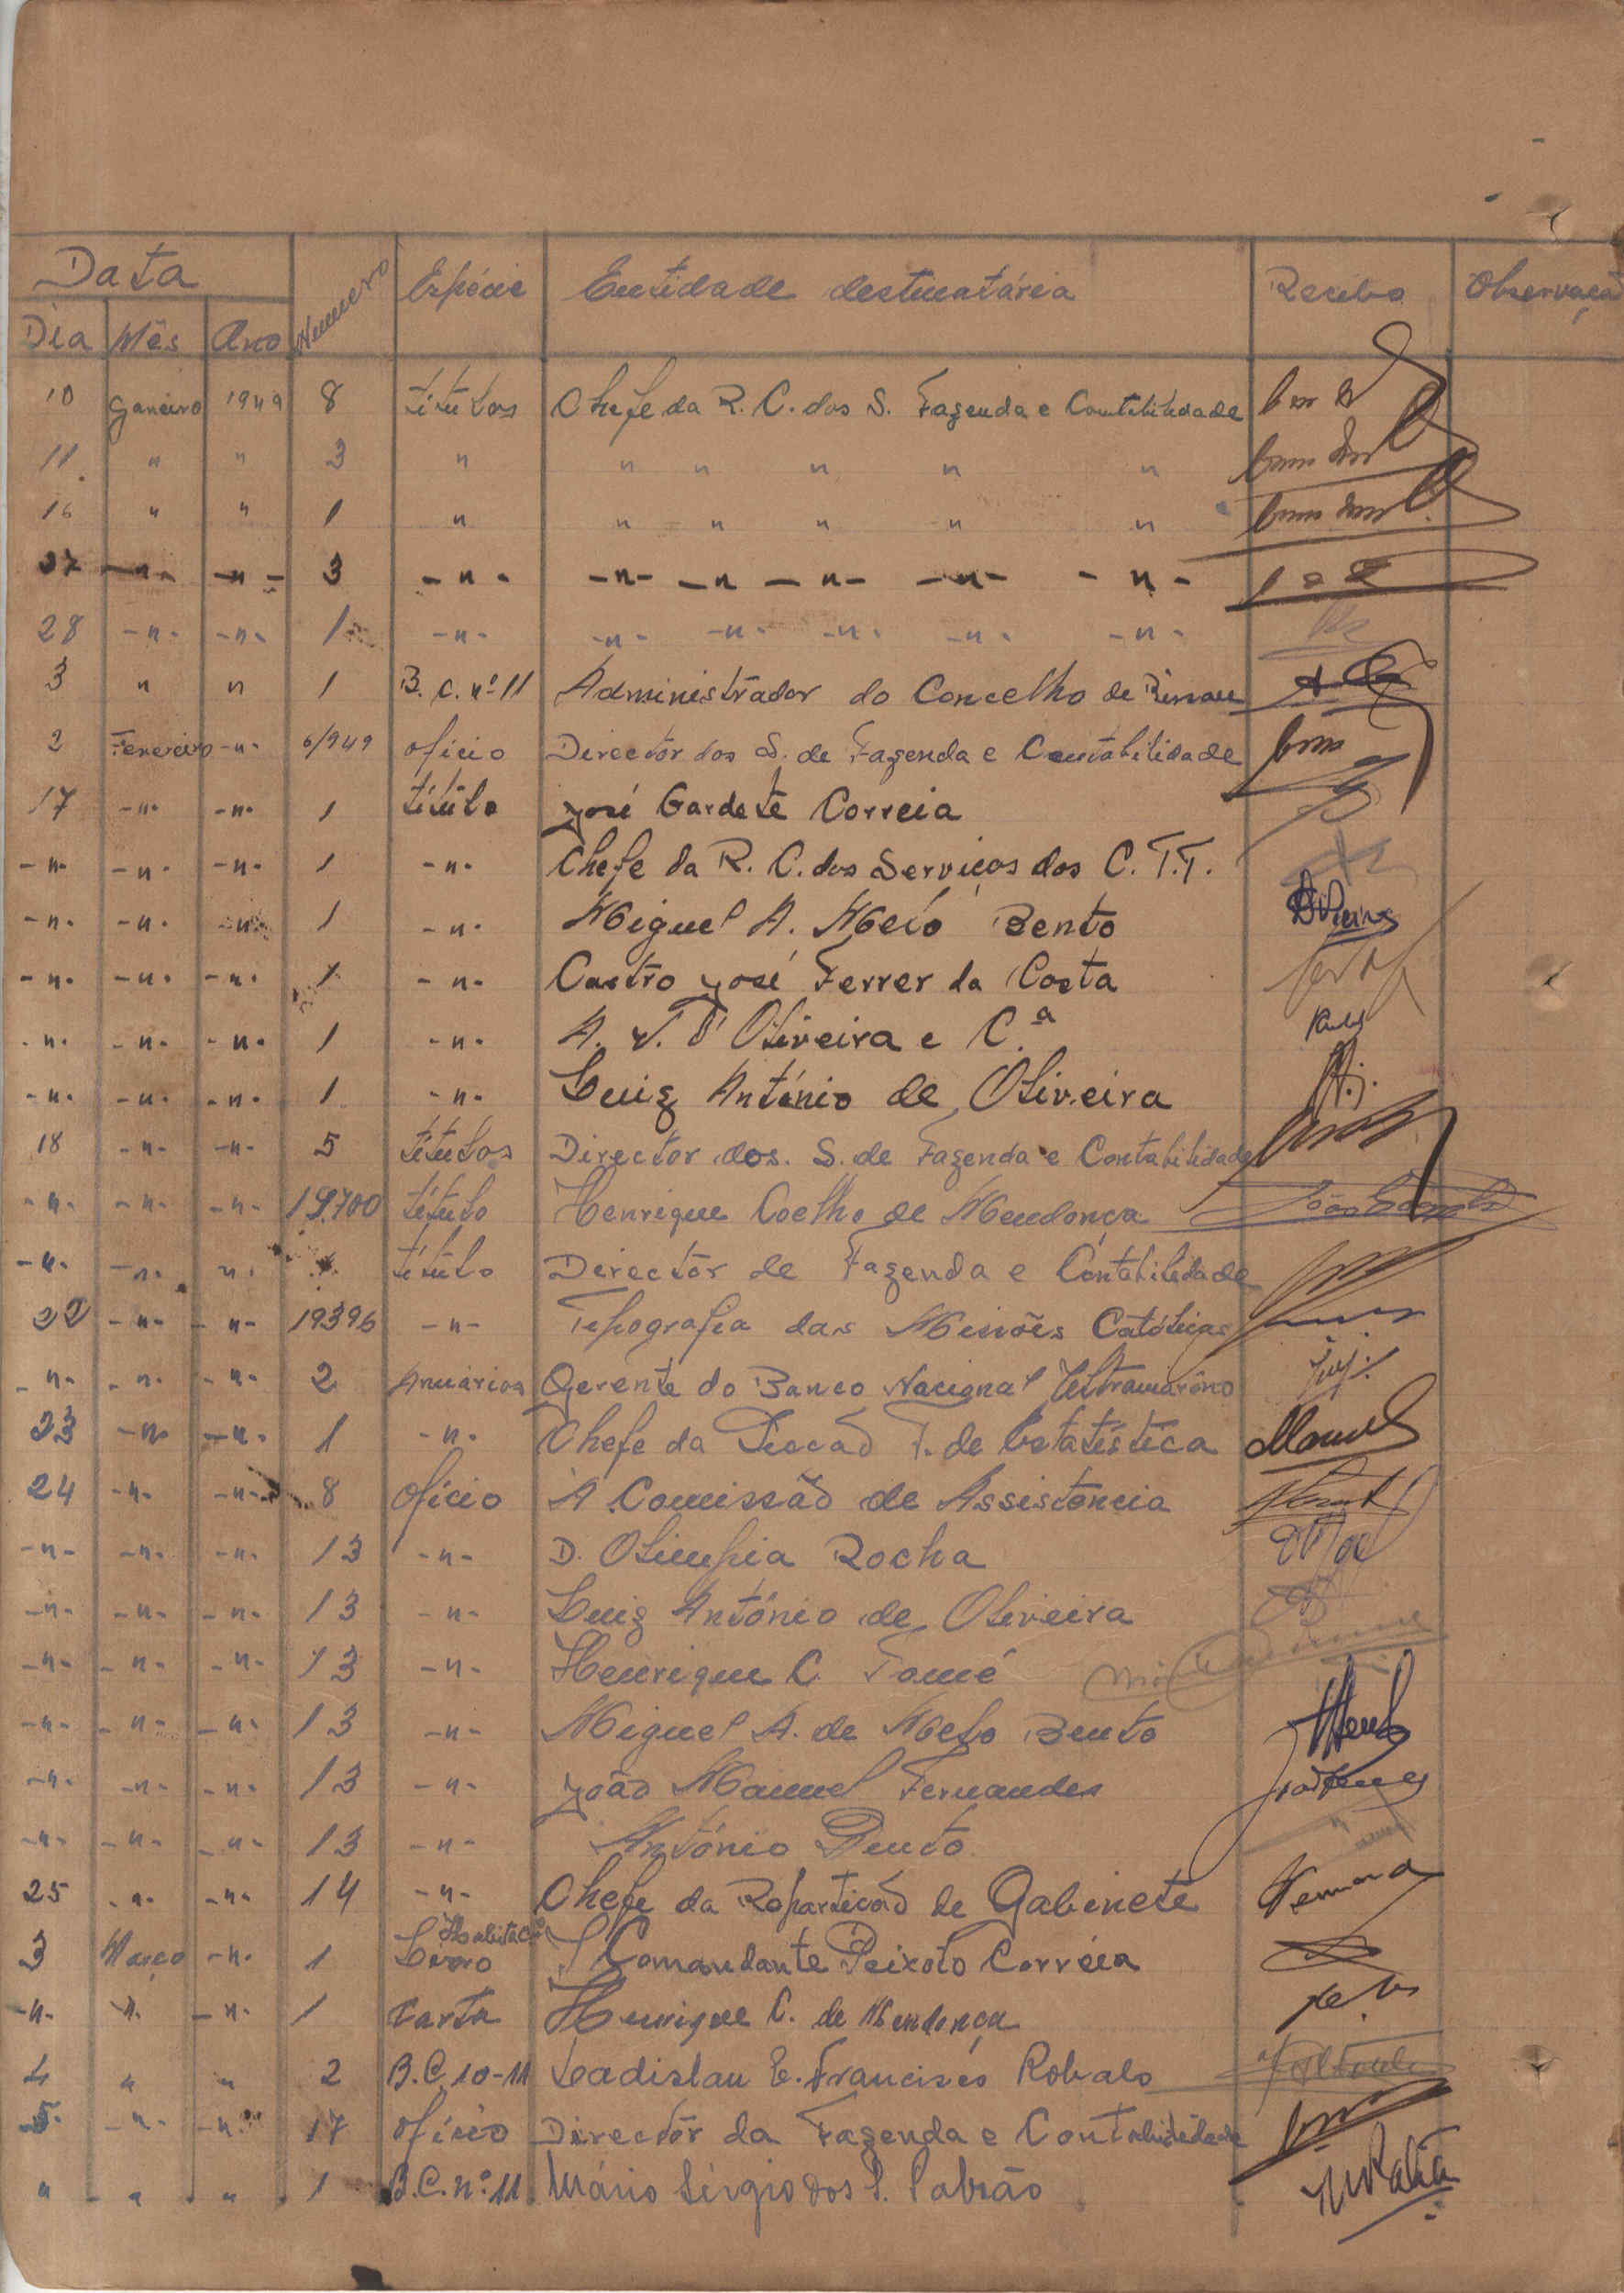 Data Numero Espécie Entidade destinatária Recibo Observaçao
Dia Mês Ano
10 Janeiro 1949 8 títulos Chefe da R. C. dos S. Fazenda e Contabilidade
11 " " 3 " " " " " "
16 " " 1 " " " " " "
27 -"- -"- 3 -"- -"- -"- -"- -"- -"-
28 -"- -"- 1 -"- -"- -"- -"- -"- -"-
3 " " 1 B. C. nº 11 Administrador do Concelho de Bissau
2 Fevereiro -"- 6/949 oficio Director dos S. de Fazenda e Contabilidade
17 -"- -"- 1 título José Gardete Correia
-"- -"- -"- 1 -"- Chefe da R. C. dos Serviços dos C. T. T.
-"- -"- -"- 1 -"- Miguel A. Melo Bento
-"- -"- -"- 1 -"- Castro José Ferrer da Costa
-"- -"- -"- 1 -"- A. V. d'Oliveira e C.ª
-"- -"- -"- 1 -"- Luiz António de Oliveira
18 -"- -"- 5 títulos Director dos. S. de Fazenda e Contabilidade
-"- -"- -"- 19700 título Henrique Coelho de Mendonça
-"- -"- -"- título Director de Fazenda e Contabilidade
22 -"- -"- 19396 -"- Tipografia das Missões Católicas
-"- -"- -"- 2 Anuários Gerente do Banco Nacional Ultramarino
23 -"- -"- 1 -"- Chefe da Secção T. de Estatística
24 -"- -"- 8 Ofício A Comissão de Assistência
-"- -"- -"- 13 -"- D. Olimpia Rocha
-"- -"- -"- 13 -"- Luiz António de Oliveira
-"- -"- -"- 13 -"- Henrique C. Tomé
-"- -"- -"- 13 -"- Miguel A. de Melo Bento
-"- -"- -"- 13 -"- João Manuel Fernandes
-"- -"- -"- 13 -"- António Bento
25 -"- -"- 14 -"- Chefe da Repartição de Gabinete
3 Março -"- 1 Livro Comandante Peixoto Corrêia
-"- ". -"- 1 Carta Henrique C. de Mendonça
4 " " 2 B.C. 10-11 Ladislau E. Francisco Robalo
5 -"- -"- 17 Ofício Director da Fazenda e Contabilidade
" " " 1 B.C. nº 11 Mário Sérgio dos S. Pabrão